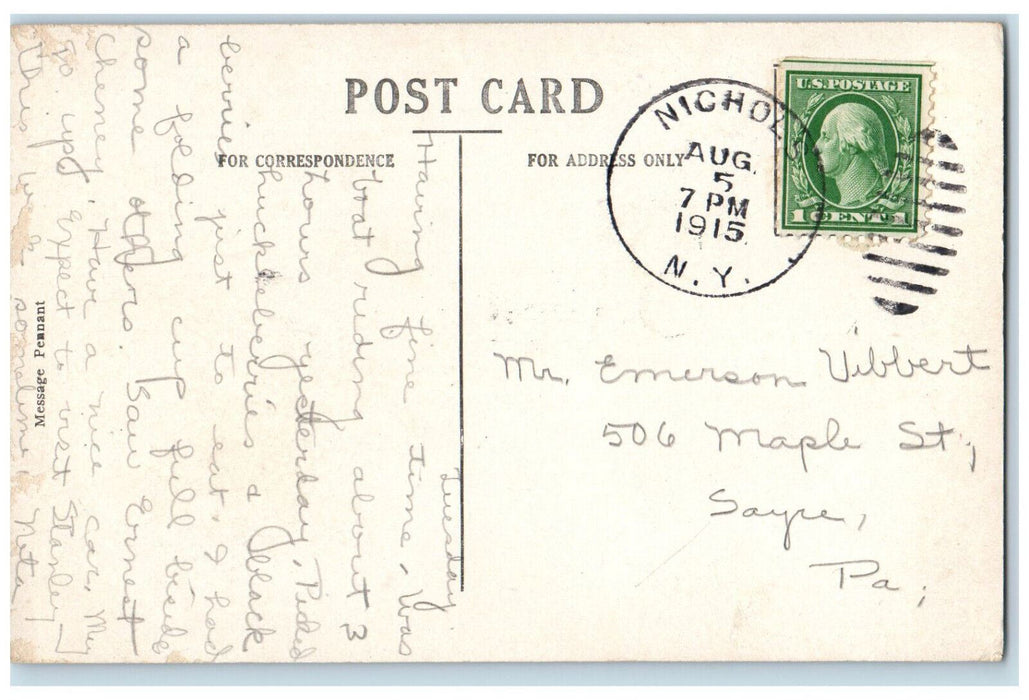 POST CARD
FOR CORRESPONDENCE
FOR ADDRESS ONLY
NICHOLS
AUG.
5
7 PM
1915
N.Y.
U.S. POSTAGE
1 CENT 1
Mr. Emerson Vibbert
506 Maple St,
Sayre,
Pa,
Tuesday
Having fine time. Was
boat riding about 3
hours yesterday. Picked
huckleberries & black
berries just to eat. I had
a folding cup full beside
some others. Saw Ernest
Cheney. Have a nice car. My
to up. Expect to visit Stanley
this we
sometime. Neta
Message Pennant